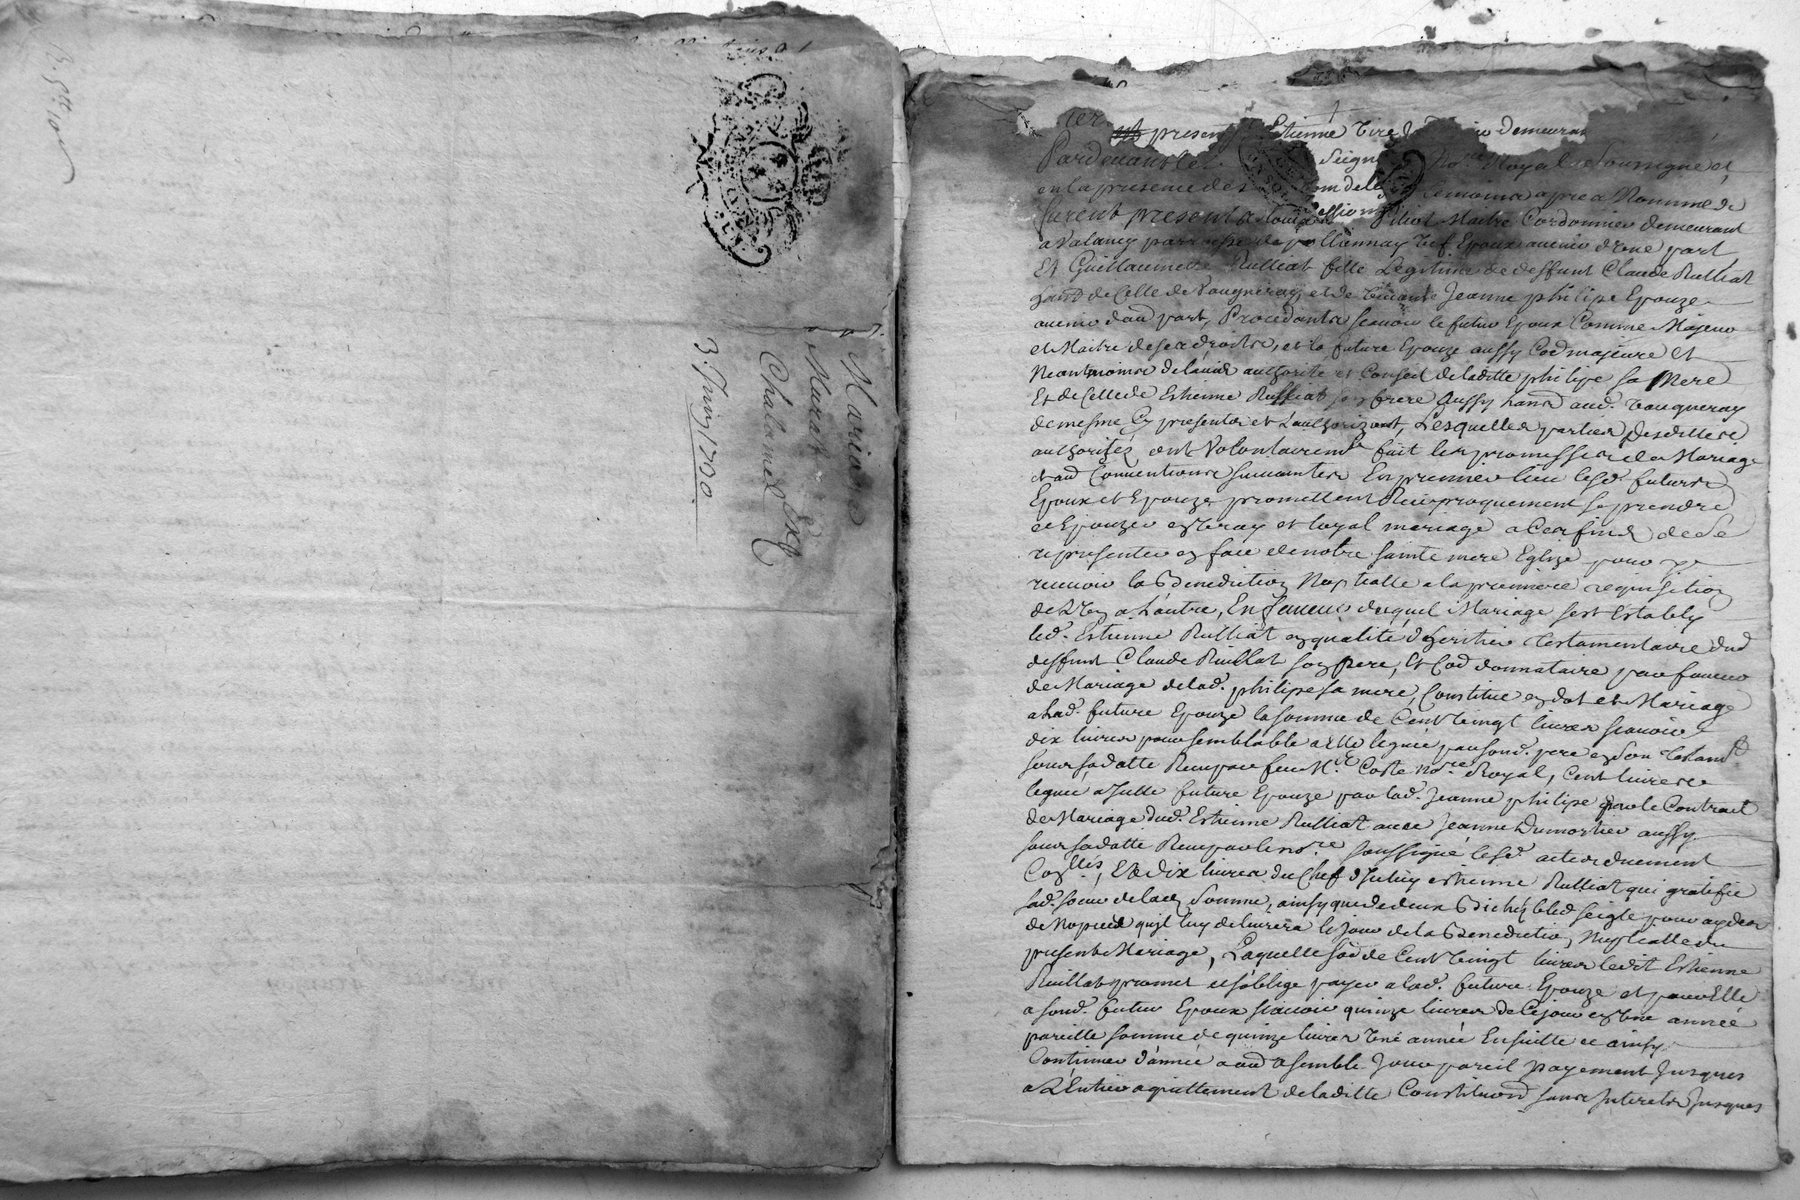 Mariage
Murat
Chalanel
3. Juing 1730
presens Estienne demeurant
Pardevant le Royal soussigné et
en la presence des temoins apprès nommés
furent presents Maitre Cordonnier demeurant
a Valancy parroisse de pollionnay Epoux avenir d'une part
Et Guillaumette Rulliat fille Legitime de deffunt Claude Rulliat
de Vaugneray, et de vivante Jeanne philipe Epouze
avenir d'au part, Procedants scavoir le futur Epoux Comme Majeur
et Maitre de ses droits, et la future Epouze aussy Majeure et
Neantmoins de lavis authorité et Conseil de laditte philipe sa Mere
Et de Celle de Estienne Rulliat son frere Aussy aud. Vaugneray
de mesme Cy presents et L'authorizant, Lesquelles parties
authorités ont Volontairemt fait les promesses de Mariage
et Conventions suivantes En premier lieu lesd. futurs
Epoux et Epouze promettent Reciproquement se prendre
et Epouzer en vray et loyal mariage a Ces fins de se
representer en face de notre sainte mere Eglize pour y
recevoir la Benediction Nuptialle a la premiere requisition
de L'un a L'autre, En faveur duquel Mariage sest Estably
led. Estienne Rulliat en qualité d'heritier testamentaire dud
deffunt Claude Rulliat son pere, Et donnataire par faveur
de Mariage de lad. philipe sa mere, Constitue en dot et Mariage
a Lad. future Epouze la somme de Cent vingt livres scavoir
dix livres pour semblable a Elle leguée par sond. pere en son testamt
sous sa datte Receu par feu Me. Coste nore Royal, Cent livres
leguée a Jcelle future Epouze par lad. Jeanne philipe par le Contrait
de Mariage dud. Estienne Rulliat avec Jeanne Dumortier aussy
sous sa datte Receu par le nore soussigné lesd. actes duement
Conllés, Et dix livres du Chef d'Jceluy estienne Rulliat qui gratifie
sad. soeur de lad. Somme, ainsy que de deux Bichez bled seigle pour
de Nopces qu'il luy delivrera le jour de la Benediction Nuptialle du
present Mariage, Laquelle de Cent vingt livres ledit Estienne
Rulliat promet et s'oblige payer a lad. future Epouze et pour Elle
a sond. futur Epoux scavoir quinze livres de Ce jour en Une année
pareille somme de quinze livres Une année Ensuitte et ainsy
Continuer d'année a au semblable Jour pareil payement Jusques
a L'Entier aquittement de laditte Constitution sans Interets Jusques